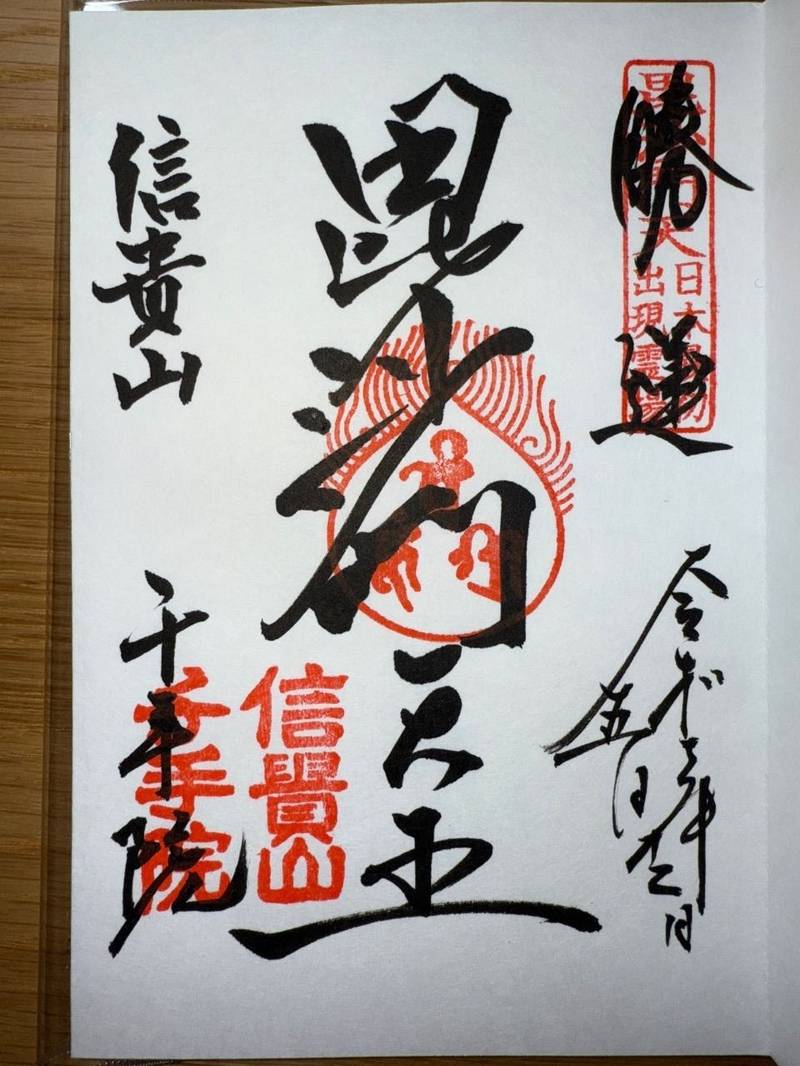 勝運
日本最初
毘沙門天
出現霊場
令和
年
五月
日
毘沙門天王
信貴山
信貴山
千手院
千手院